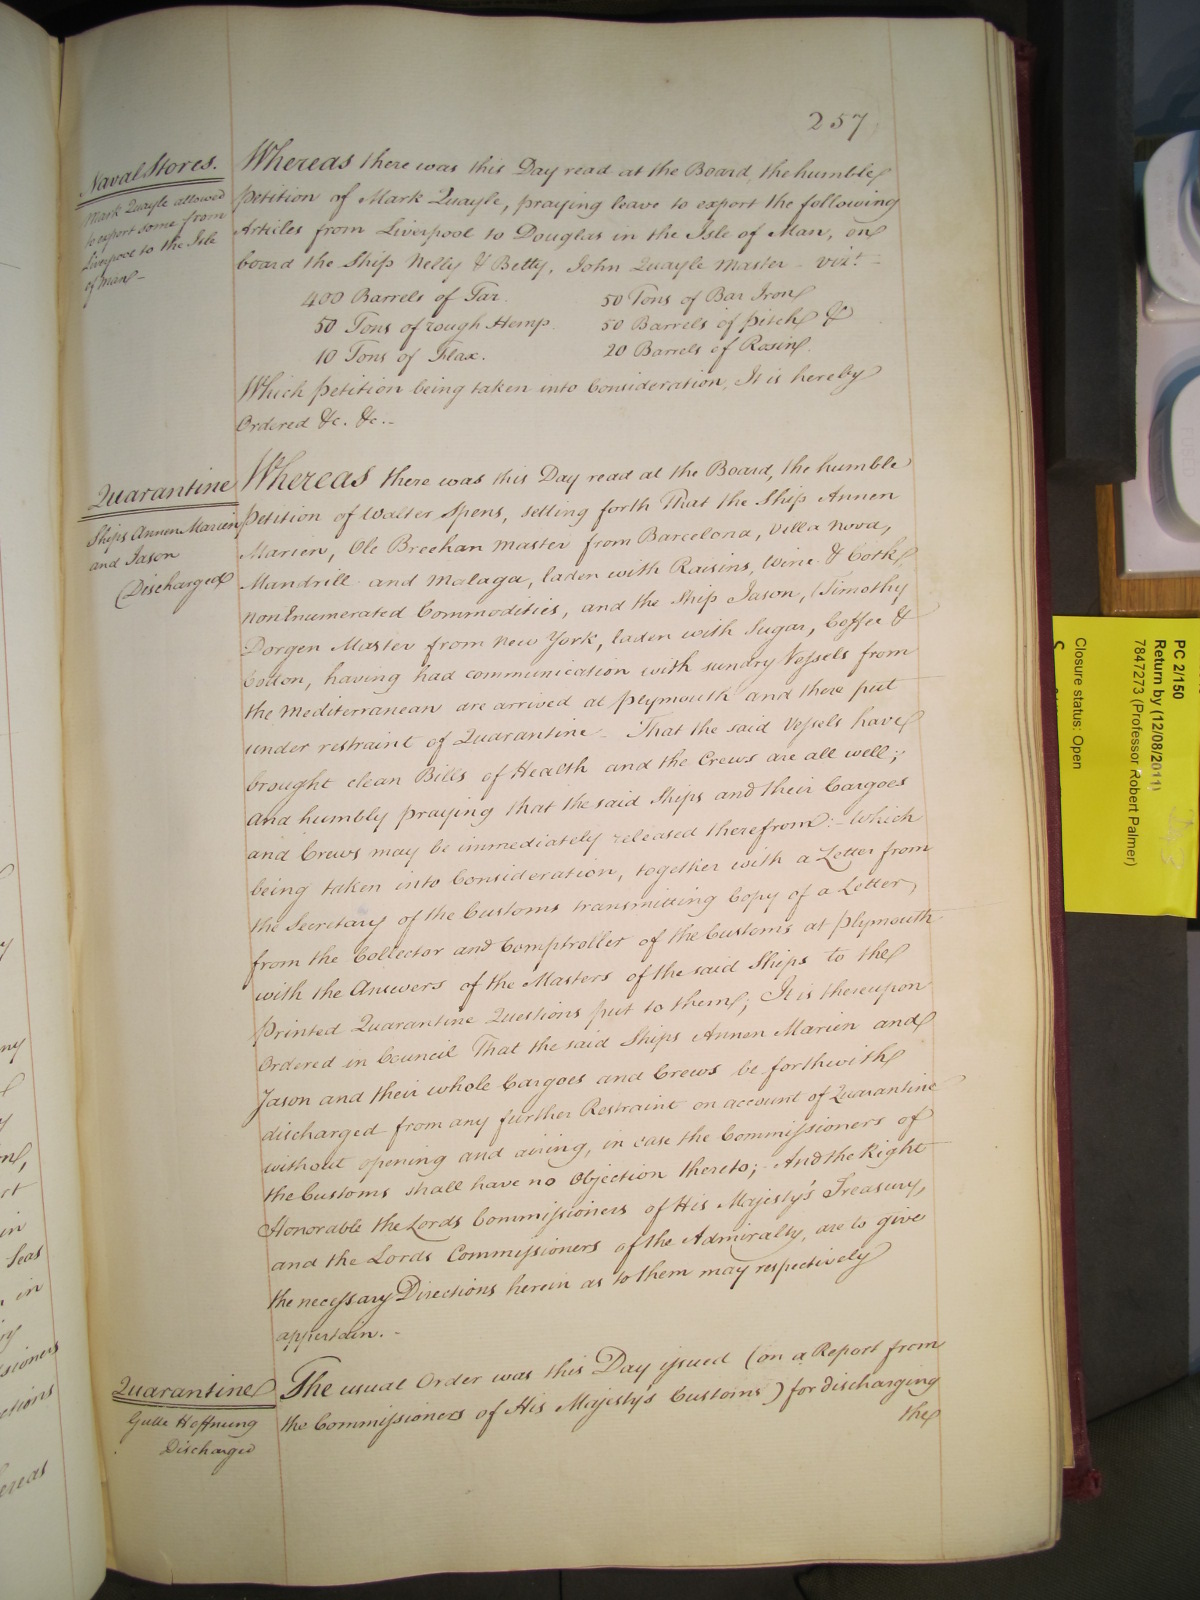 257
Naval Stores.
Mark Quayle allowed
to export some from
Liverpool to the Isle
of Man -
Whereas there was this Day read at the Board, the humble
Petition of Mark Quayle, praying leave to export the following
Articles from Liverpool to Douglas in the Isle of Man, on
board the Ship Nelly & Betty, John Quayle Master - vizt. -
400 Barrels of Tar. 50 Tons of Bar Iron
50 Tons of rough Hemp 50 Barrels of Pitch &
10 Tons of Flax. 20 Barrels of Rosin.
Which Petition being taken into Consideration, It is hereby
Ordered &c. &c. -
Quarantine
Ships Annen Marien
and Jason
Discharged
Whereas there was this Day read at the Board, the humble
Petition of Walter Spens, setting forth That the Ship Annen
Marien, Ole Breehan Master from Barcelona, Villa Nova,
Mandrill and Malaga, laden with Raisins, Wine & Cork,
nonEnumerated Commodities, and the Ship Jason, Timothy
Dorgen Master from New York, laden with Sugar, Coffee &
Cotton, having had communication with sundry Vessels from
the Mediterranean are arrived at Plymouth and there put
under restraint of Quarantine - That the said Vessels have
brought clean Bills of Health and the Crews are all well;
and humbly praying that the said Ships and their Cargoes
and Crews may be immediately released therefrom: - Which
being taken into Consideration, together with a Letter from
the Secretary of the Customs transmitting Copy of a Letter,
from the Collector and Comptroller of the Customs at Plymouth
with the Answers of the Masters of the said Ships to the
Printed Quarantine Questions put to them; It is thereupon
Ordered in Council That the said Ships Annen Marien and
Jason and their whole Cargoes and Crews be forthwith
discharged from any further Restraint on account of Quarantine
without opening and airing, in case the Commissioners of
the Customs shall have no Objection thereto; - And the Right
Honorable the Lords Commissioners of His Majesty's Treasury,
and the Lords Commissioners of the Admiralty, are to give
the necessary Directions herein as to them may respectively
appertain. -
Quarantine
Gutte Hoffnung
Discharged
The usual Order was this Day issued (on a Report from
the Commissioners of His Majesty's Customs) for discharging
the
PC 2/150
Return by (12/08/2011)
7847273 (Professor Robert Palmer)
Closure status: Open